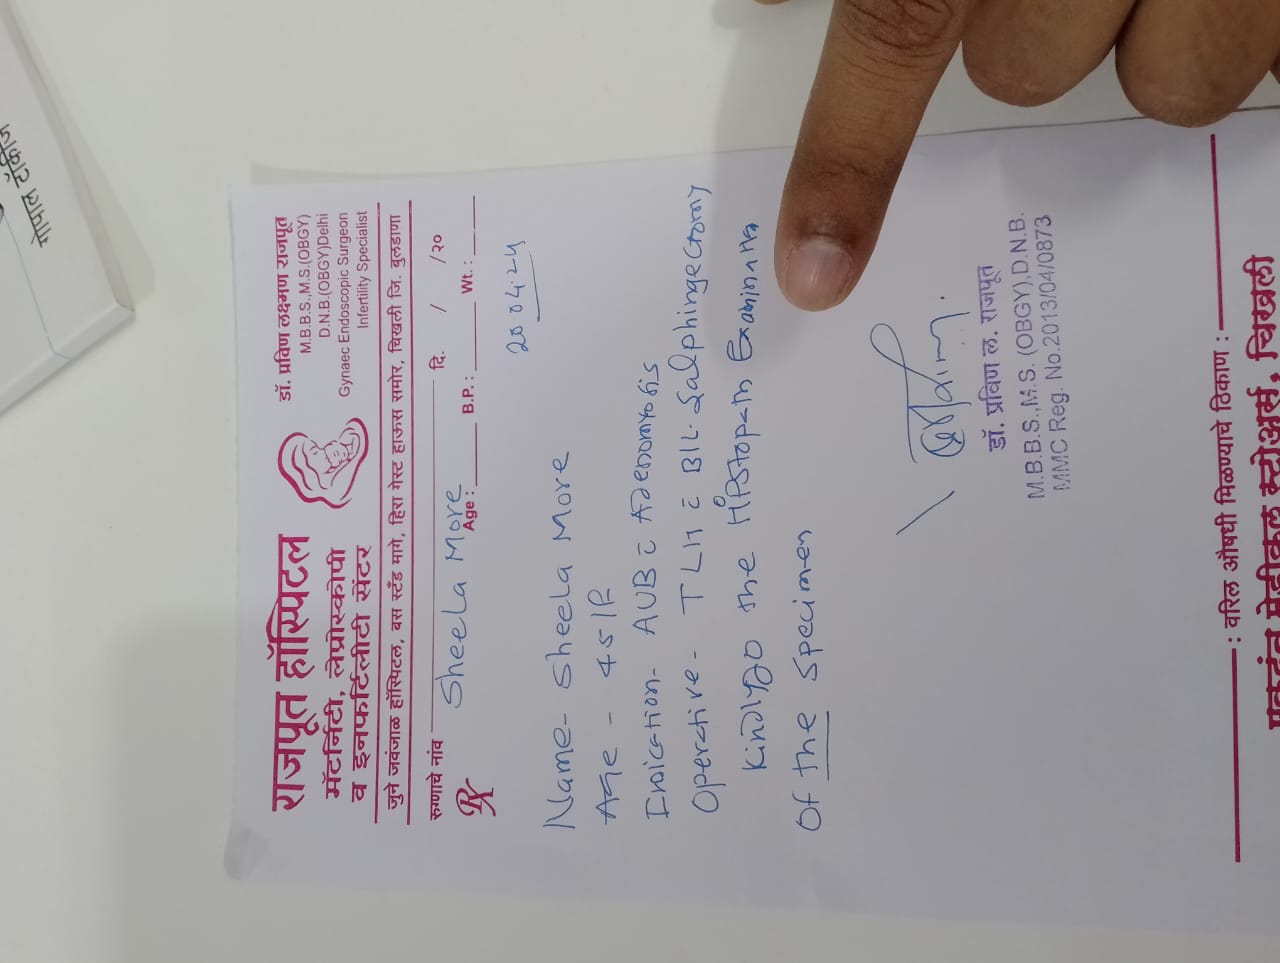 राजपूत हॉस्पिटल
मॅटर्निटी, लेप्रोस्कोपी
व इनफर्टिलीटी सेंटर
डॉ. प्रविण लक्ष्मण राजपूत
M.B.B.S.,M.S.(OBGY)
D.N.B.(OBGY)Delhi
Gynaec Endoscopic Surgeon
Infertility Specialist
जुने जवंजाळ हॉस्पिटल, बस स्टँड मागे, हिरा गेस्ट हाऊस समोर, चिखली जि. बुलडाणा
रुग्णाचे नांव Sheela More दि. / /२०
Age : B.P. : Wt. :
20 04.24
Name- Sheela More
Age - 45/F
Indication- AUB c Adenomyosis
Operative- TLH c B/L Salphingectomy
Kindly do the Histopath Examination
Of the Specimen
डॉ. प्रविण ल. राजपूत
M.B.B.S.,M.S. (OBGY),D.N.B.
MMC Reg. No.2013/04/0873
: वरिल औषधी मिळण्याचे ठिकाण :
मेडीकल स्टोअर्स, चिखली